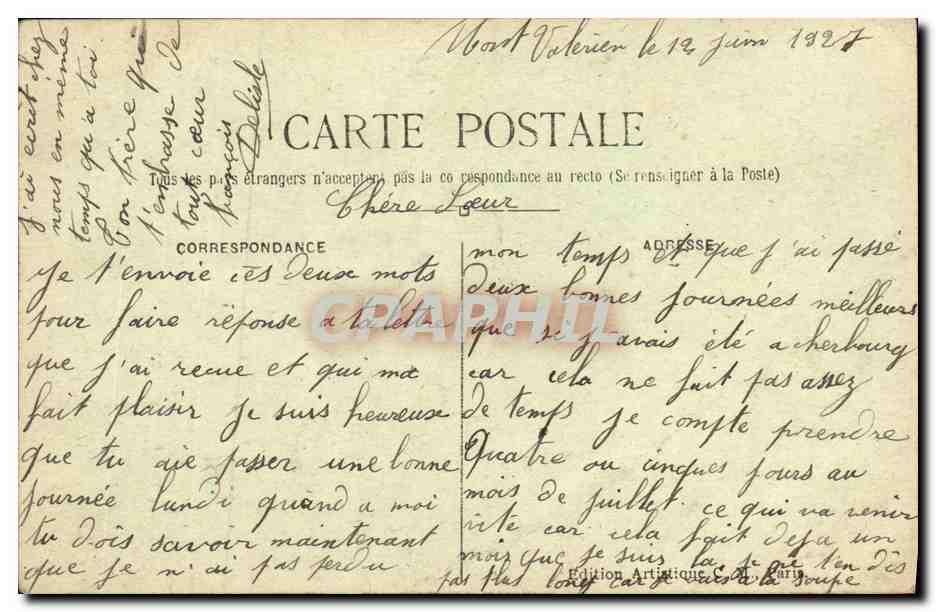 Mont Valérien le 12 juin 1927
CARTE POSTALE
Tous les pays étrangers n'acceptent pas la correspondance au recto (Se renseigner à la Poste)
Chére Sœur
CORRESPONDANCE
Je t'envoie ces deux mots
pour faire réponse a ta lettre
que j'ai recue et qui ma
fait plaisir je suis heureuse
que tu aie passer une bonne
journée lundi quand a moi
tu dois savoir maintenant
que je n'ai pas perdu
ADRESSE
mon temps et que j'ai passé
deux bonnes journées meilleurs
que si j'avais été a cherbourg
car cela ne fait pas assez
de temps je compte prendre
Quatre ou cinques jours au
mois de juillet ce qui va venir
vite car cela fait deja un
mois que je suis la je ne t'en dis
pas plus long car je vais a la soupe
Edition Artistique C. M., Paris
J'ai ecrit chez
nous en même
temps qu'a toi
Ton frère qui
t'embrasse de
tout cœur
François
Delisle
CPAPHIL